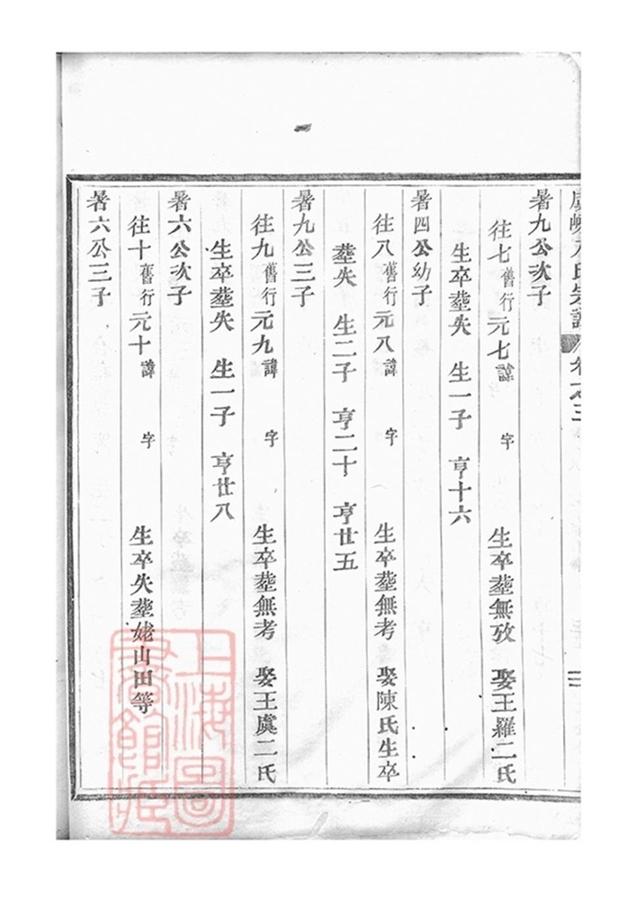 氏宗譜 卷之三
三
暑九公次子
往七舊行元七諱 字 生卒塟無攷 娶王羅二氏
生卒塟失 生一子 亨十六
暑四公幼子
往八舊行元八諱 字 生卒塟無考 娶陳氏生卒
塟失 生二子 亨二十 亨廿五
暑九公三子
往九舊行元九諱 字 生卒塟無考 娶王虞二氏
生卒塟失 生一子 亨廿八
暑六公次子
往十舊行元十諱 字 生卒失塟姥山田等
暑六公三子
上海圖書館藏